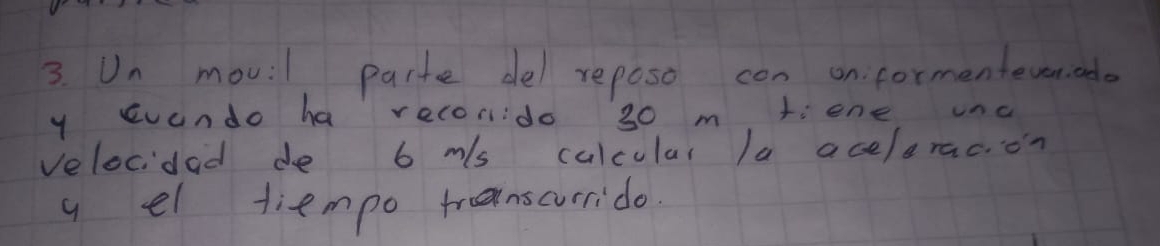 3. Un movil parte del reposo con uniformentevariado
y cuando ha recorrido 30 m tiene una
velocidad de 6 m/s calcular la aceleración
y el tiempo transcurrido.